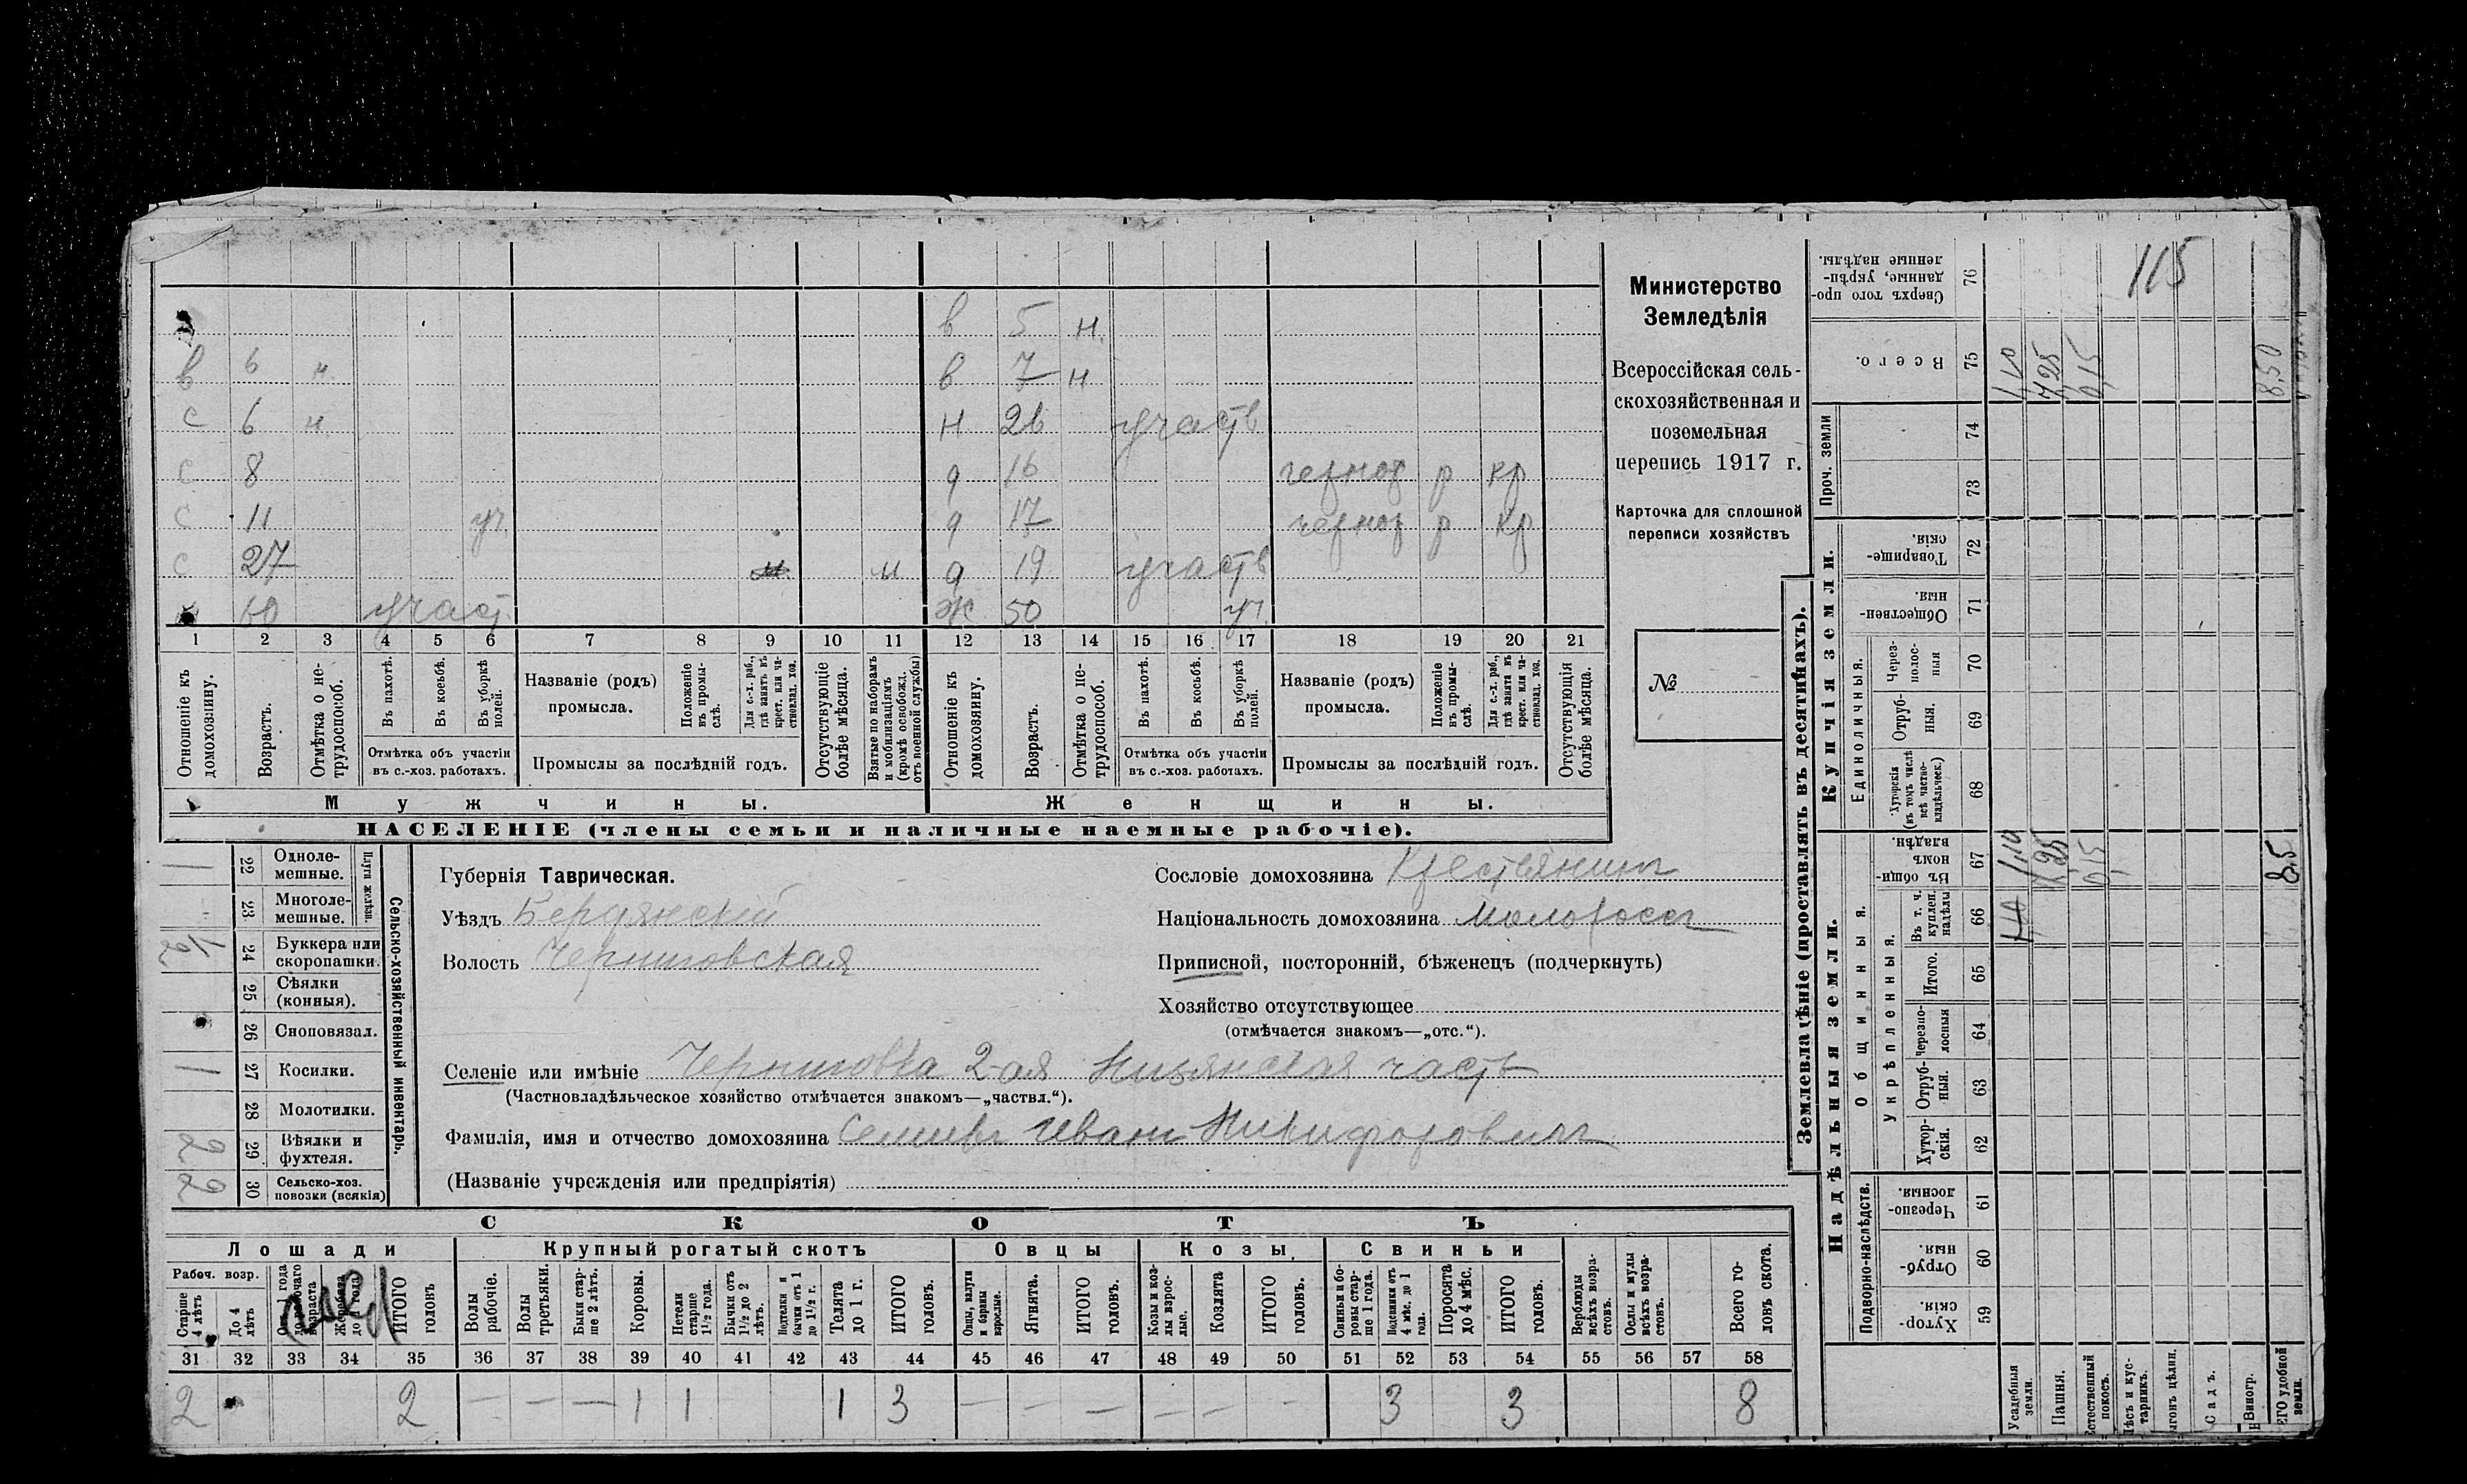 в 5 н.
в 6 н. в 7 н
с 6 н. н 26 участв
с 8 д 16 чернор р кр
с 11 уч. д 17 чернор р кр
с 27 м д 19 участв
60 участ. ж 50 уч.
1 2 3 4 5 6 7 8 9 10 11 12 13 14 15 16 17 18 19 20 21
Отношеніе къ домохозяину.
Возрастъ.
Отмѣтка о нетрудоспособ.
Въ пахотѣ.
Въ косьбѣ.
Въ уборкѣ полей.
Отмѣтка объ участіи
въ с.-хоз. работахъ.
Названіе (родъ)
промысла.
Положеніе въ промыслѣ.
Для с.-х. раб., гдѣ занятъ въ крест. или частновлад. хоз.
Промыслы за послѣдній годъ.
Отсутствующіе болѣе мѣсяца.
Взятые по наборамъ и мобилизаціямъ (кромѣ освобожд. отъ военной службы)
Отношеніе къ домохозяину.
Возрастъ.
Отмѣтка о нетрудоспособ.
Въ пахотѣ.
Въ косьбѣ.
Въ уборкѣ полей.
Отмѣтка объ участіи
въ с.-хоз. работахъ.
Названіе (родъ)
промысла.
Положеніе въ промыслѣ.
Для с.-х. раб., гдѣ занята въ крест. или частновлад. хоз.
Промыслы за послѣдній годъ.
Отсутствующія болѣе мѣсяца.
Мужчины. Женщины.
НАСЕЛЕНІЕ (члены семьи и наличные наемные рабочіе).
Министерство
Земледѣлія
Всероссійская сель-
скохозяйственная и
поземельная
перепись 1917 г.
Карточка для сплошной
переписи хозяйствъ
№
Сельско-хозяйственный инвентарь.
Плуги желѣзн.
1 22 Однолемешные.
23 Многолемешные.
1/2 24 Буккера или скоропашки.
25 Сѣялки (конныя).
26 Сноповязал.
1 27 Косилки.
28 Молотилки.
2 29 Вѣялки и фухтеля.
2 30 Сельско-хоз. повозки (всякія)
Губернія Таврическая.
Уѣздъ Бердянскій
Волость Черниговская
Сословіе домохозяина Крестьянинъ
Національность домохозяина Малороссъ
Приписной, посторонній, бѣженецъ (подчеркнуть)
Хозяйство отсутствующее
(отмѣчается знакомъ—„отс.“).
Селеніе или имѣніе Черниговка 2-ая Низянская часть
(Частновладѣльческое хозяйство отмѣчается знакомъ—„частвл.“).
Фамилія, имя и отчество домохозяина Иванъ Никифоровичъ
(Названіе учрежденія или предпріятія)
СКОТЪ
Лошади Крупный рогатый скотъ Овцы Козы. Свиньи
Рабоч. возр.
Старше 4 лѣтъ
До 4 лѣтъ
Отъ 1 года до рабочаго возраста
Жеребята до 1 года
ИТОГО головъ
Волы рабочіе.
Волы третьяки.
Быки старше 2 лѣтъ.
Коровы.
Нетели старше 1½ года.
Бычки отъ 1½ до 2 лѣтъ.
Подтелки и бычки отъ 1 до 1½ г.
Телята до 1 г.
ИТОГО головъ.
Овцы, валухи и бараны взрослые.
Ягнята.
ИТОГО головъ.
Козы и козлы взрослые.
Козлята
ИТОГО головъ.
Свиньи и боровы старше 1 года.
Подсвинки отъ 4 мѣс. до 1 года.
Поросята до 4 мѣс.
ИТОГО головъ.
Верблюды всѣхъ возрастовъ.
Ослы и мулы всѣхъ возрастовъ.
Всего головъ скота.
31 32 33 34 35 36 37 38 39 40 41 42 43 44 45 46 47 48 49 50 51 52 53 54 55 56 57 58
2 2 — — — 1 1 1 3 — — — — — - 3 3 8
Землевладѣніе (проставлять въ десятинахъ).
Надѣльныя земли.
Купчія земли.
Проч. земли
Подворно-наслѣдств.
Общинныя.
Укрѣпленныя.
Единоличныя.
Сверхъ того проданные, укрѣпленные надѣлы. 76
Всего. 75
74
73
Товарищескія. 72
Общественныя. 71
Черезполосныя 70
Отрубныя. 69
Хуторскія (въ томъ числѣ всѣ частновладѣльческ.) 68
Въ общинномъ владѣн. 67
Въ т. ч. куплен. надѣлы 66
Итого. 65
Черезполосныя 64
Отрубныя. 63
Хуторскія. 62
Черезполосныя. 61
Отрубныя. 60
Хуторскія. 59
Усадебныя земли.
Пашня.
Естественный покосъ.
Лѣсъ и кустарникъ.
Садъ.
Виногр.
удобной земли.
115
1,10 7,25 0,15 8,50
1,10 7,25 0,15 8,5